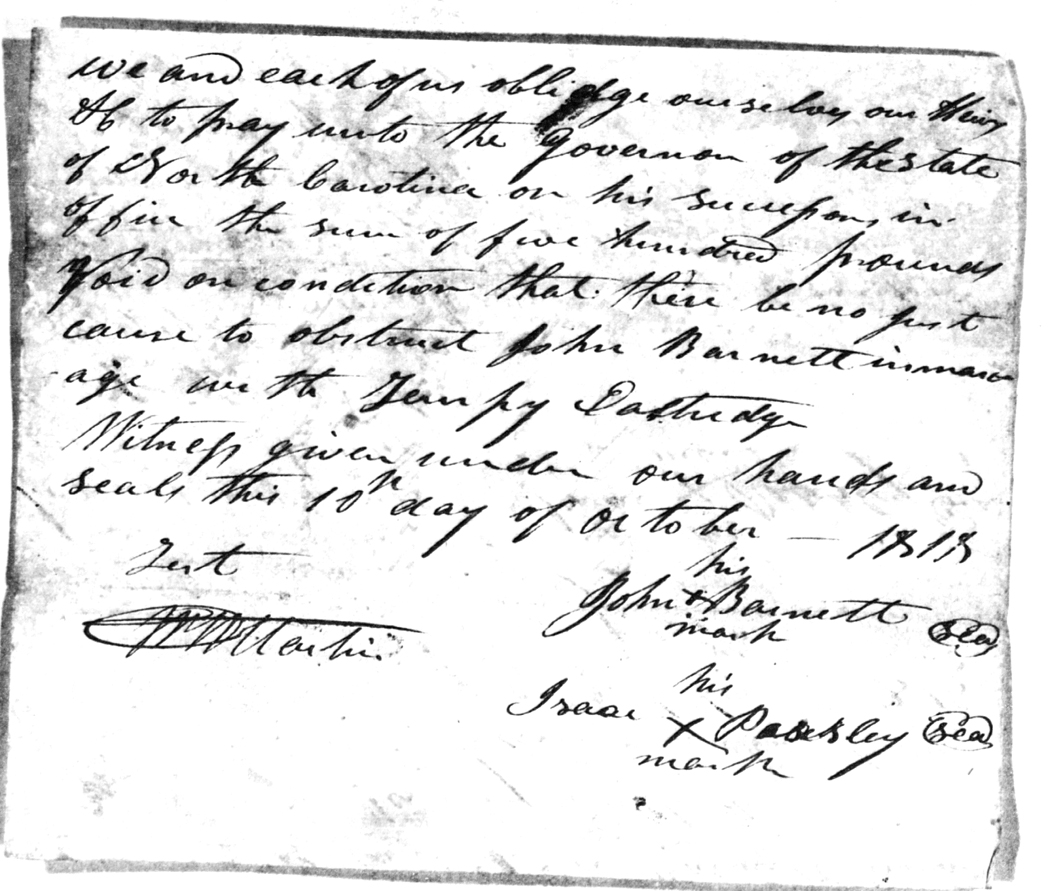 we and each of us oblidge ourselvs our Heirs
&C to pay unto the governor of the state
of North Carolina or his successors in
office the sum of five hundred pounds
Void on condition that there be no just
cause to obstruct John Barnett in marri
age with Tempy Eastridge
Witness given under our hands and
seals this 10th day of October — 1818
Test
his
John x Barnett seal
mark
Martin
his
Isaac x Pansley seal
mark